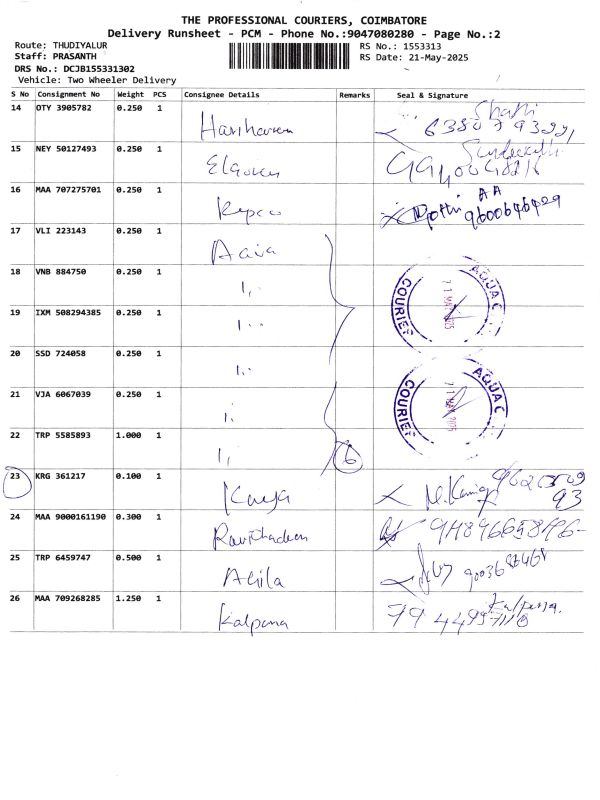 THE PROFESSIONAL COURIERS, COIMBATORE
Delivery Runsheet - PCM - Phone No.:9047080280 - Page No.:2
Route: THUDIYALUR
RS No.: 1553313
Staff: PRASANTH
RS Date: 21-May-2025
DRS No.: DCJB155331302
Vehicle: Two Wheeler Delivery
S No Consignment No Weight PCS Consignee Details Remarks Seal & Signature
14 OTY 3905782 0.250 1 Hariharan
15 NEY 50127493 0.250 1
16 MAA 707275701 0.250 1 Repco 9600646429
17 VLI 223143 0.250 1
18 VNB 884750 0.250 1 1,, AQUA C COURIER
19 IXM 508294385 0.250 1 1,,
20 SSD 724058 0.250 1 1,,
21 VJA 6067039 0.250 1 1,, AQUA C COURIER
22 TRP 5585893 1.000 1 1,, 6
23 KRG 361217 0.100 1 93
24 MAA 9000161190 0.300 1
25 TRP 6459747 0.500 1 Akila
26 MAA 709268285 1.250 1 Kalpana Kalpana.